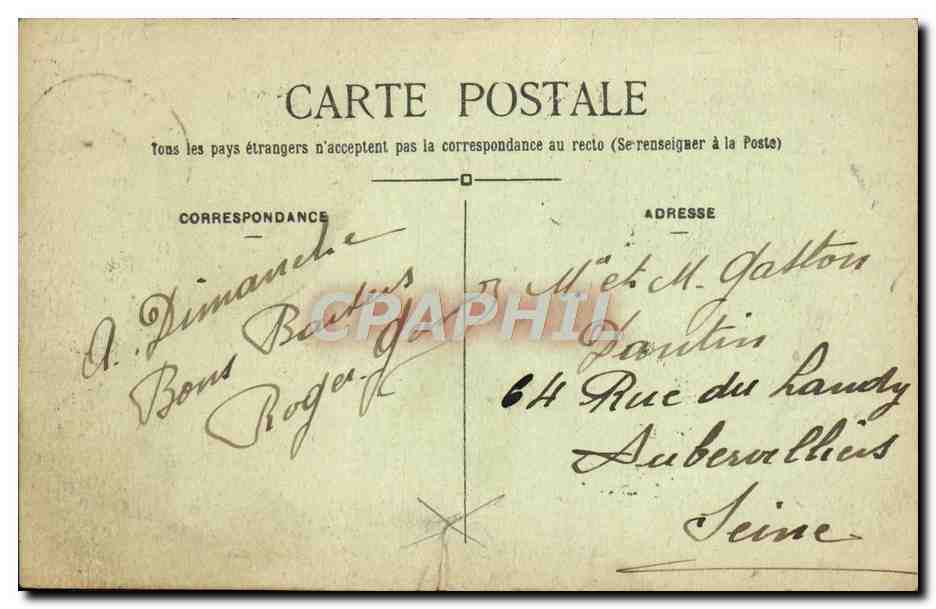 CARTE POSTALE
Tous les pays étrangers n'acceptent pas la correspondance au recto (Se renseigner à la Poste)
CORRESPONDANCE
A. Dimanche
Bons Baisers
Roger
ADRESSE
Mme et M. Gaston
Dantin
64 Rue du Landy
Aubervilliers
Seine
CPAPHIL